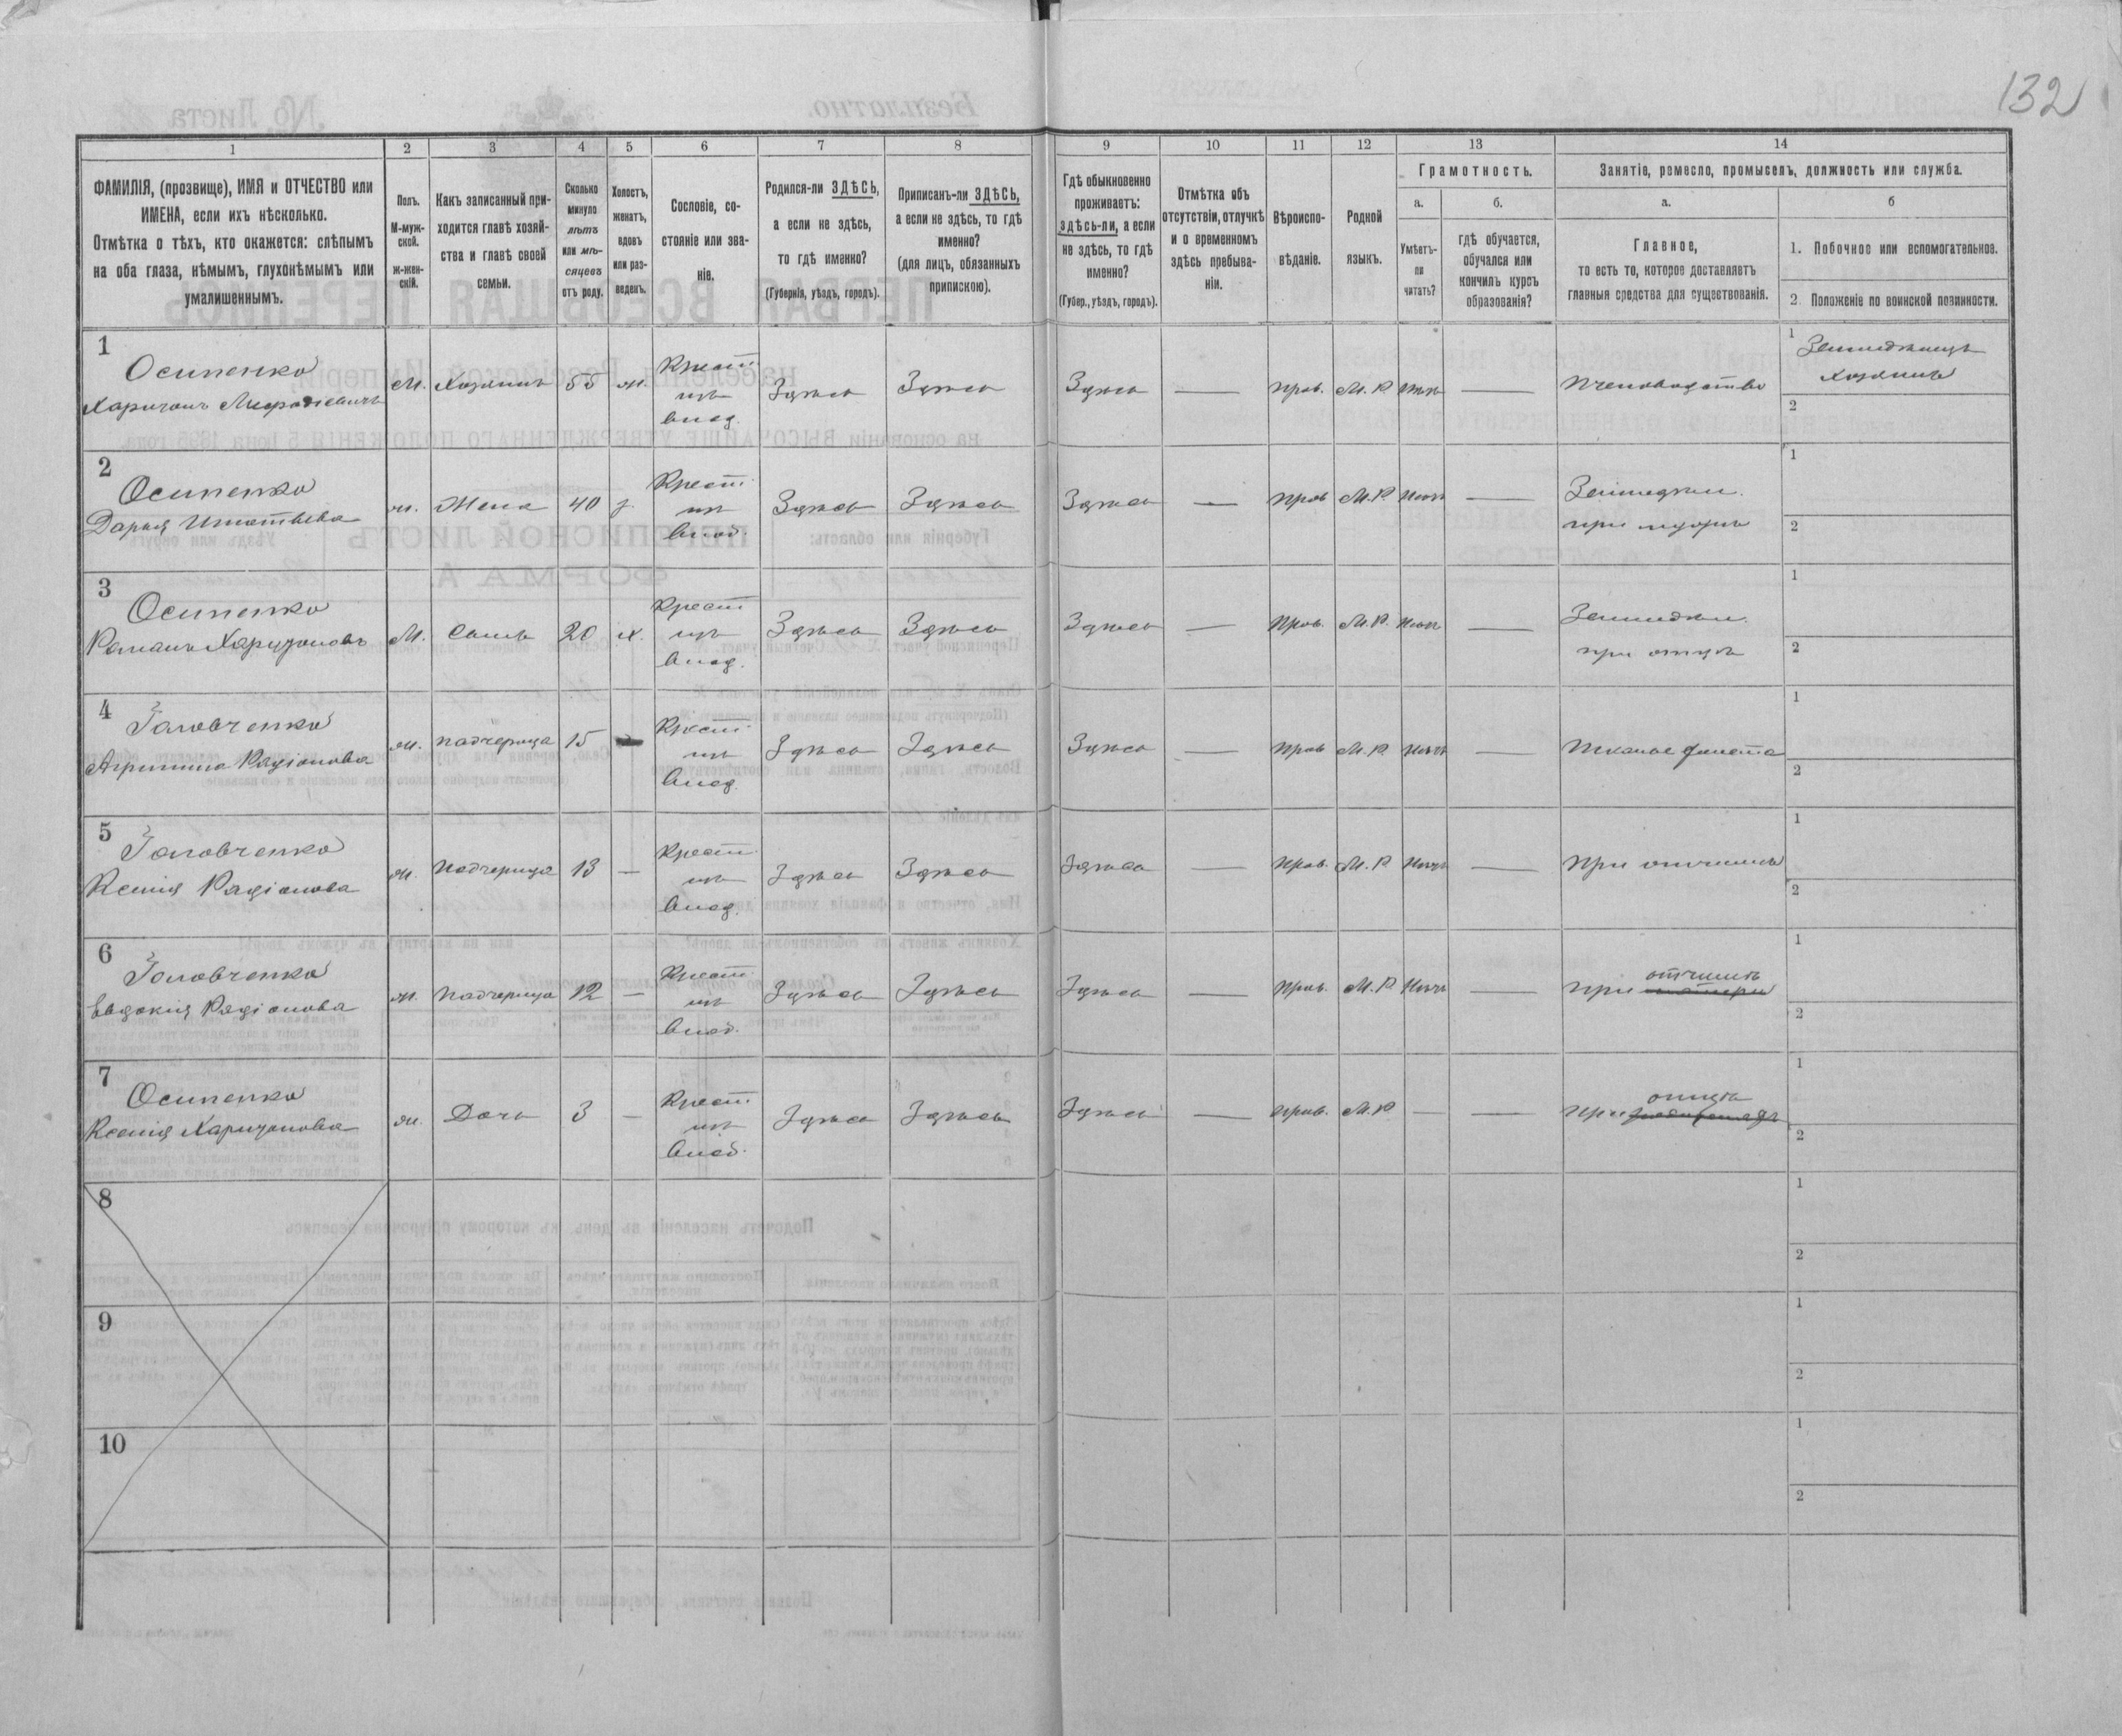 132
1
2
3
4
5
6
7
8
9
10
11
12
13
14
ФАМИЛІЯ, (прозвище), ИМЯ и ОТЧЕСТВО или
ИМЕНА, если ихъ нѣсколько.
Отмѣтка о тѣхъ, кто окажется: слѣпымъ
на оба глаза, нѣмымъ, глухонѣмымъ или
умалишеннымъ.
Полъ.
М-муж-
ской.
ж-жен-
скій.
Какъ записанный при-
ходится главѣ хозяй-
ства и главѣ своей
семьи.
Сколько
минуло
лѣтъ
или мѣ-
сяцевъ
отъ роду.
Холостъ,
женатъ,
вдовъ
или раз-
веденъ.
Сословіе, со-
стояніе или зва-
ніе.
Родился-ли ЗДѢСЬ,
а если не здѣсь,
то гдѣ именно?
(Губернія, уѣздъ, городъ).
Приписанъ-ли ЗДѢСЬ,
а если не здѣсь, то гдѣ
именно?
(для лицъ, обязанныхъ
припискою).
Гдѣ обыкновенно
проживаетъ:
здѣсь-ли, а если
не здѣсь, то гдѣ
именно?
(Губер., уѣздъ, городъ).
Отмѣтка объ
отсутствіи, отлучкѣ
и о временномъ
здѣсь пребыва-
ніи.
Вѣроиспо-
вѣданіе.
Родной
языкъ.
Грамотность.
а.
Умѣетъ-
ли
читать?
б.
гдѣ обучается,
обучался или
кончилъ курсъ
образованія?
Занятіе, ремесло, промыселъ, должность или служба.
а.
Главное,
то есть то, которое доставляетъ
главныя средства для существованія.
б
1. Побочное или вспомогательное.
2. Положеніе по воинской повинности.
1
Осипенко
М. Хозяинъ 55 ж. Крест. изъ влад. Здѣсь Здѣсь Здѣсь — прав. М. Р — Пчеловодство
1 Земледѣлецъ
хозяинъ
2
2
Осипенко
Дарья Игнатьева
ж. Жена 40 з. Крест. изъ влад. Здѣсь Здѣсь Здѣсь — прав М. Р. нѣтъ — Земледѣл.
при мужѣ
1
2
3
Осипенко
Романъ Харитоновъ
М. Сынъ 20 х. Крест изъ влад. Здѣсь Здѣсь Здѣсь — Прав. М. Р. нѣтъ — Земледѣл.
при отцѣ
1
2
4
Головченко
Агрипина Радіонова
ж. падчерица 15 — Крест. изъ влад. Здѣсь Здѣсь Здѣсь — прав М. Р нѣтъ —
1
2
5
Головченко
Ксенія Радіонова
ж. Падчерица 13 — Крест. изъ влад. Здѣсь Здѣсь Здѣсь — прав. М. Р нѣтъ — При отчимѣ
1
2
6
Головченко
Евдокія Радіонова
ж. Падчерица 12 — Крест. изъ влад. Здѣсь Здѣсь Здѣсь — прав. М. Р нѣтъ — при матери отчимѣ
1
2
7
Осипенко
Ксенія Харитонова
ж. Дочь 3 — Крест изъ влад. Здѣсь Здѣсь Здѣсь — прав. М. Р — — при отцѣ
1
2
8
1
2
9
1
2
10
1
2